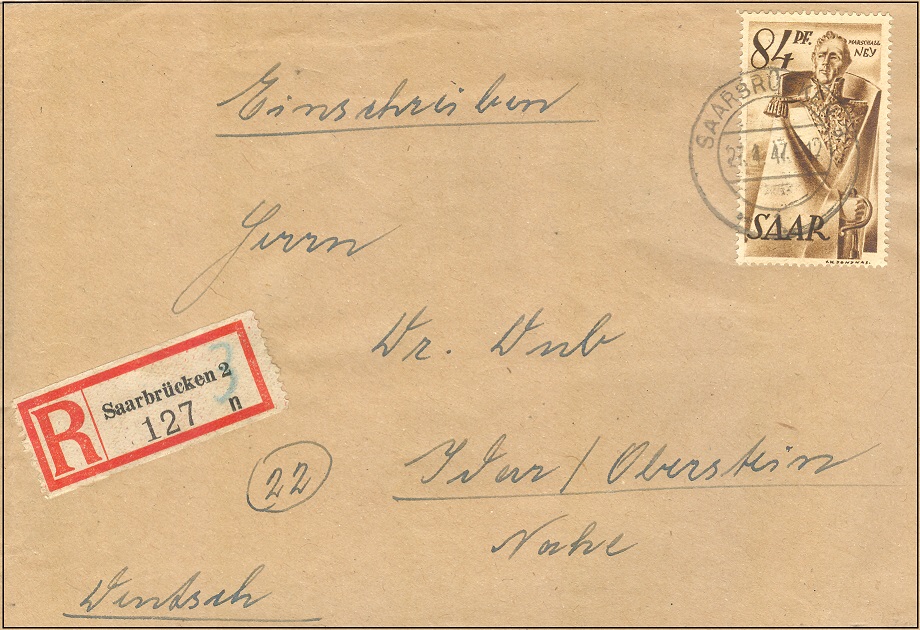 Einschreiben
84 PF.
MARSCHALL
NEY
SAARBRÜ
27.4.47. 12
SAAR
Herrn
Dr. Dub
R Saarbrücken 2
127 n
3
22
Idar/Oberstein
Nahe
Deutsch